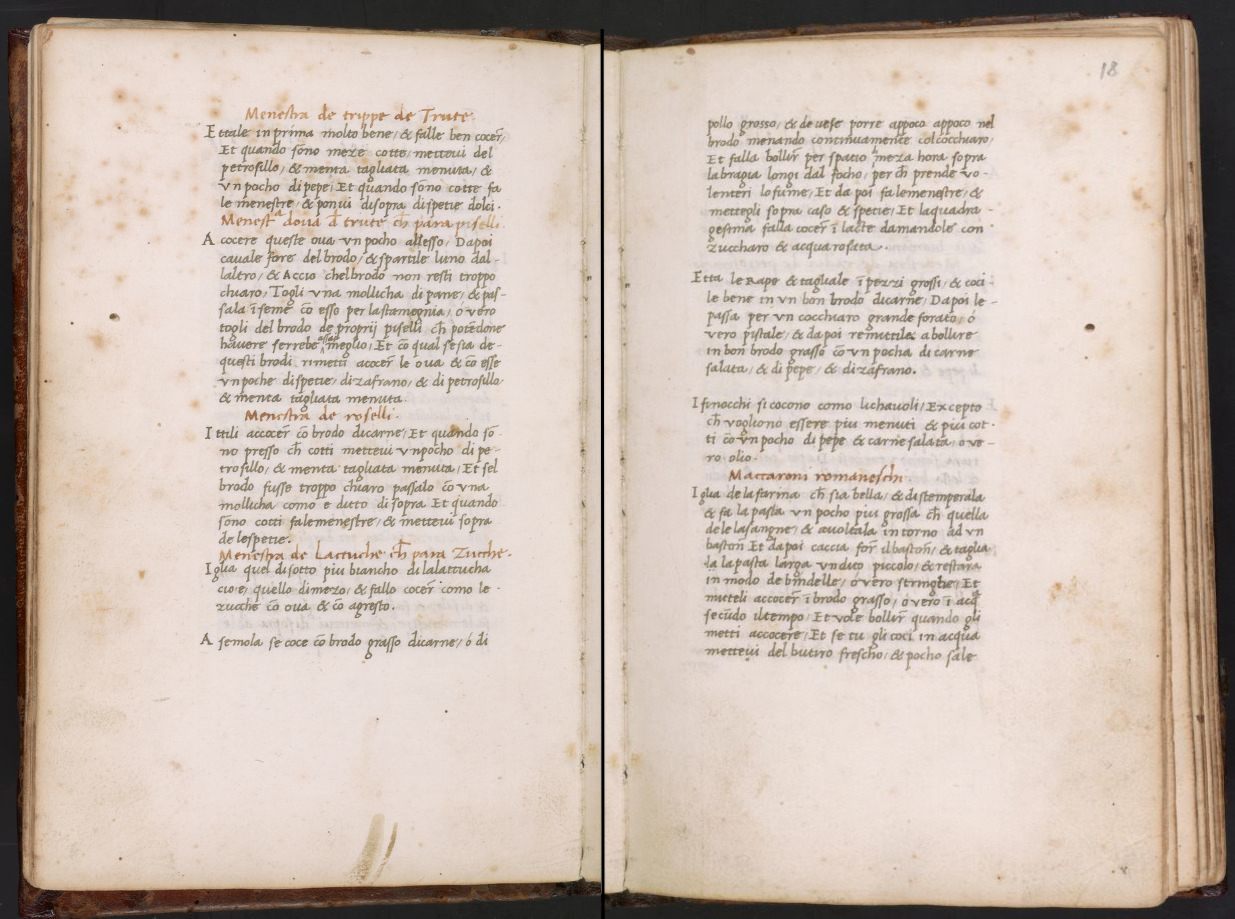 Menestra de trippe de Trute.
Ettale in prima molto bene, & falle ben cocer̃,
Et quando sõno meze cotte, mettovi del
petrosillo, & menta tagliata menuta, &
vn pocho di pepe, Et quando sõno cotte fa
le menestre, & ponivi disopra di spetie dolci.
Menestᵃ dova d̃ trute ch̃ para piselli.
A cocere queste ova vn pocho allesso, Dapoi
cavale fore del brodo, & spartile luno dal-
laltro, & Accio chel brodo non resti troppo
chiaro, Togli vna mollicha di pane, & pas-
sala ĩseme cõ esso per lastamegnia, ó vero
togli del brodo de proprij piselli ch̃ potẽdone
havere serrebe assai meglio, Et cõ qual se sia de-
questi brodi rimetti acocer̃ le ova & cõ esse
vn poche di spetie, di zafrano, & di petrosillo
& menta tagliata menuta.
Menestra de roselli.
Ittili accocer̃ cõ brodo dicarne, Et quando sõ-
no presso ch̃ cotti mettevi vnpocho di pe-
trosillo, & menta tagliata menuta, Et sel
brodo fusse troppo chiaro passalo cõ vna
mollicha como e ditto di sopra Et quando
sõno cotti falemenestre, & mettevi sopra
de lespetie.
Menestra de Lactuche ch̃ para Zucche.
Iglia quel disotto piu biancho di lalattucha
cioe, quello dimezo, & fallo cocer̃ como le-
zucche cõ ova, & cõ agresto.
A semola se coce cõ brodo grasso dicarne, ó di
18
pollo grosso, & devese porre appoco appoco nel
brodo menando continuamente colcocchiaro,
Et falla bollir̃ per spatio meza hora sopra
la bragia longi dal focho, per ch̃ prende vo-
lenteri lo fume, Et da poi falemenestre, &
mettegli sopra caso & spetie, Et la quadra-
gesima falla cocer̃ ĩ lacte damandole con
zuccharo & acqua rosata.
Etta le Rape & tagliale ĩ pezzi grossi, & coci-
le bene in un bon brodo dicarne, Dapoi le-
passa per vn cocchiaro grande forato, ó
vero pistale, & dapoi remittile a bollire
in bon brodo grasso cõ vn pocha di carne
salata, & di pepe, & dizafrano.
I finocchi si cocono como lichavoli, Excepto
ch̃ vogliono essere piu menuti & piu cot-
ti cõ vn pocho di pepe & carne salata, o ve-
ro olio.
Maccaroni romaneschi
Iglia de la farina ch̃ sia bella, & distemperala
& fa la pasta vn pocho piu grossa ch̃ quella
de le lasangne, & avoltala in torno ad vn
bastoñ Et dapoi caccia for̃ il bastoñ, & taglia
la la pasta larga vn dito piccolo, & restara
in modo de bindelle, ó vero stringhe, Et
mitteli accocer̃ ĩ brodo grasso, ó vero ĩ acq̃
secũdo il tempo, Et vole bollir̃ quando gli
metti accocere, Et se tu gli coci in acqua
mettevi del butiro frescho, & pocho sale